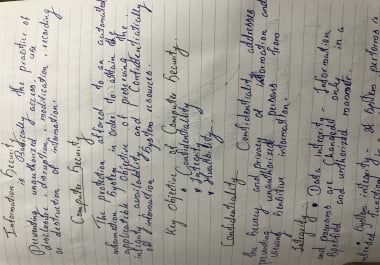 Information Security
is Basically the practice of
Preventing unauthorized access, use
disclosure, disruption, modification, recording
or destruction of information.
Computer Security
The protection offered to an automated
information system in order to attain the
applicable objective of preserving the
integrity availability and Confidentiality
of information system resources.
Key Objective of Computer Security.
• Confidentiality
• Integrity
• Availability
Confidentiality
Confidentiality addresses
the secrecy and privacy of information and
preventing unauthorized persons from
sensitive information.
Integrity
• Data integrity Information
and programs are Changed only in a
specified and authorized manner.
• System integrity A System performs is